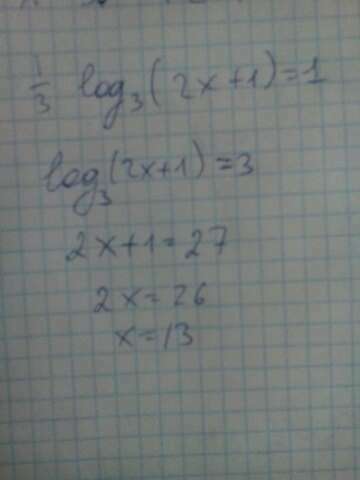 1/3 log₃(2x+1)=1
log₃(2x+1)=3
2x+1=27
2x=26
x=13